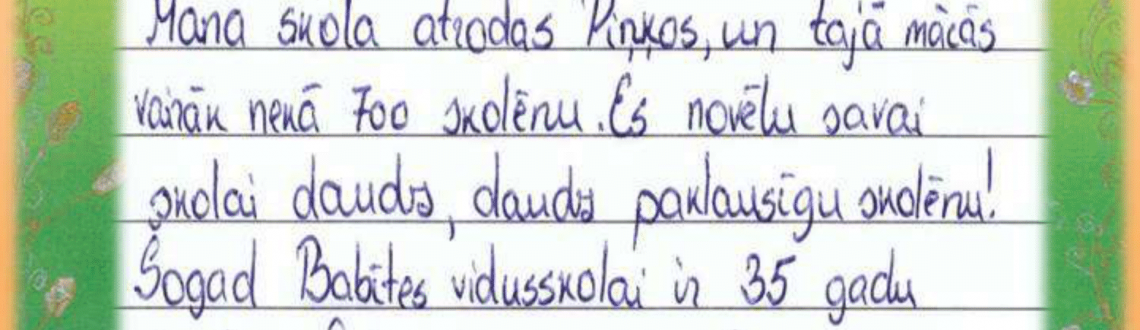 Mana skola atrodas Piņķos, un tajā mācās
vairāk nekā 700 skolēnu. Es novēlu savai
skolai daudz, daudz paklausīgu skolēnu!
Šogad Babītes vidusskolai ir 35 gadu